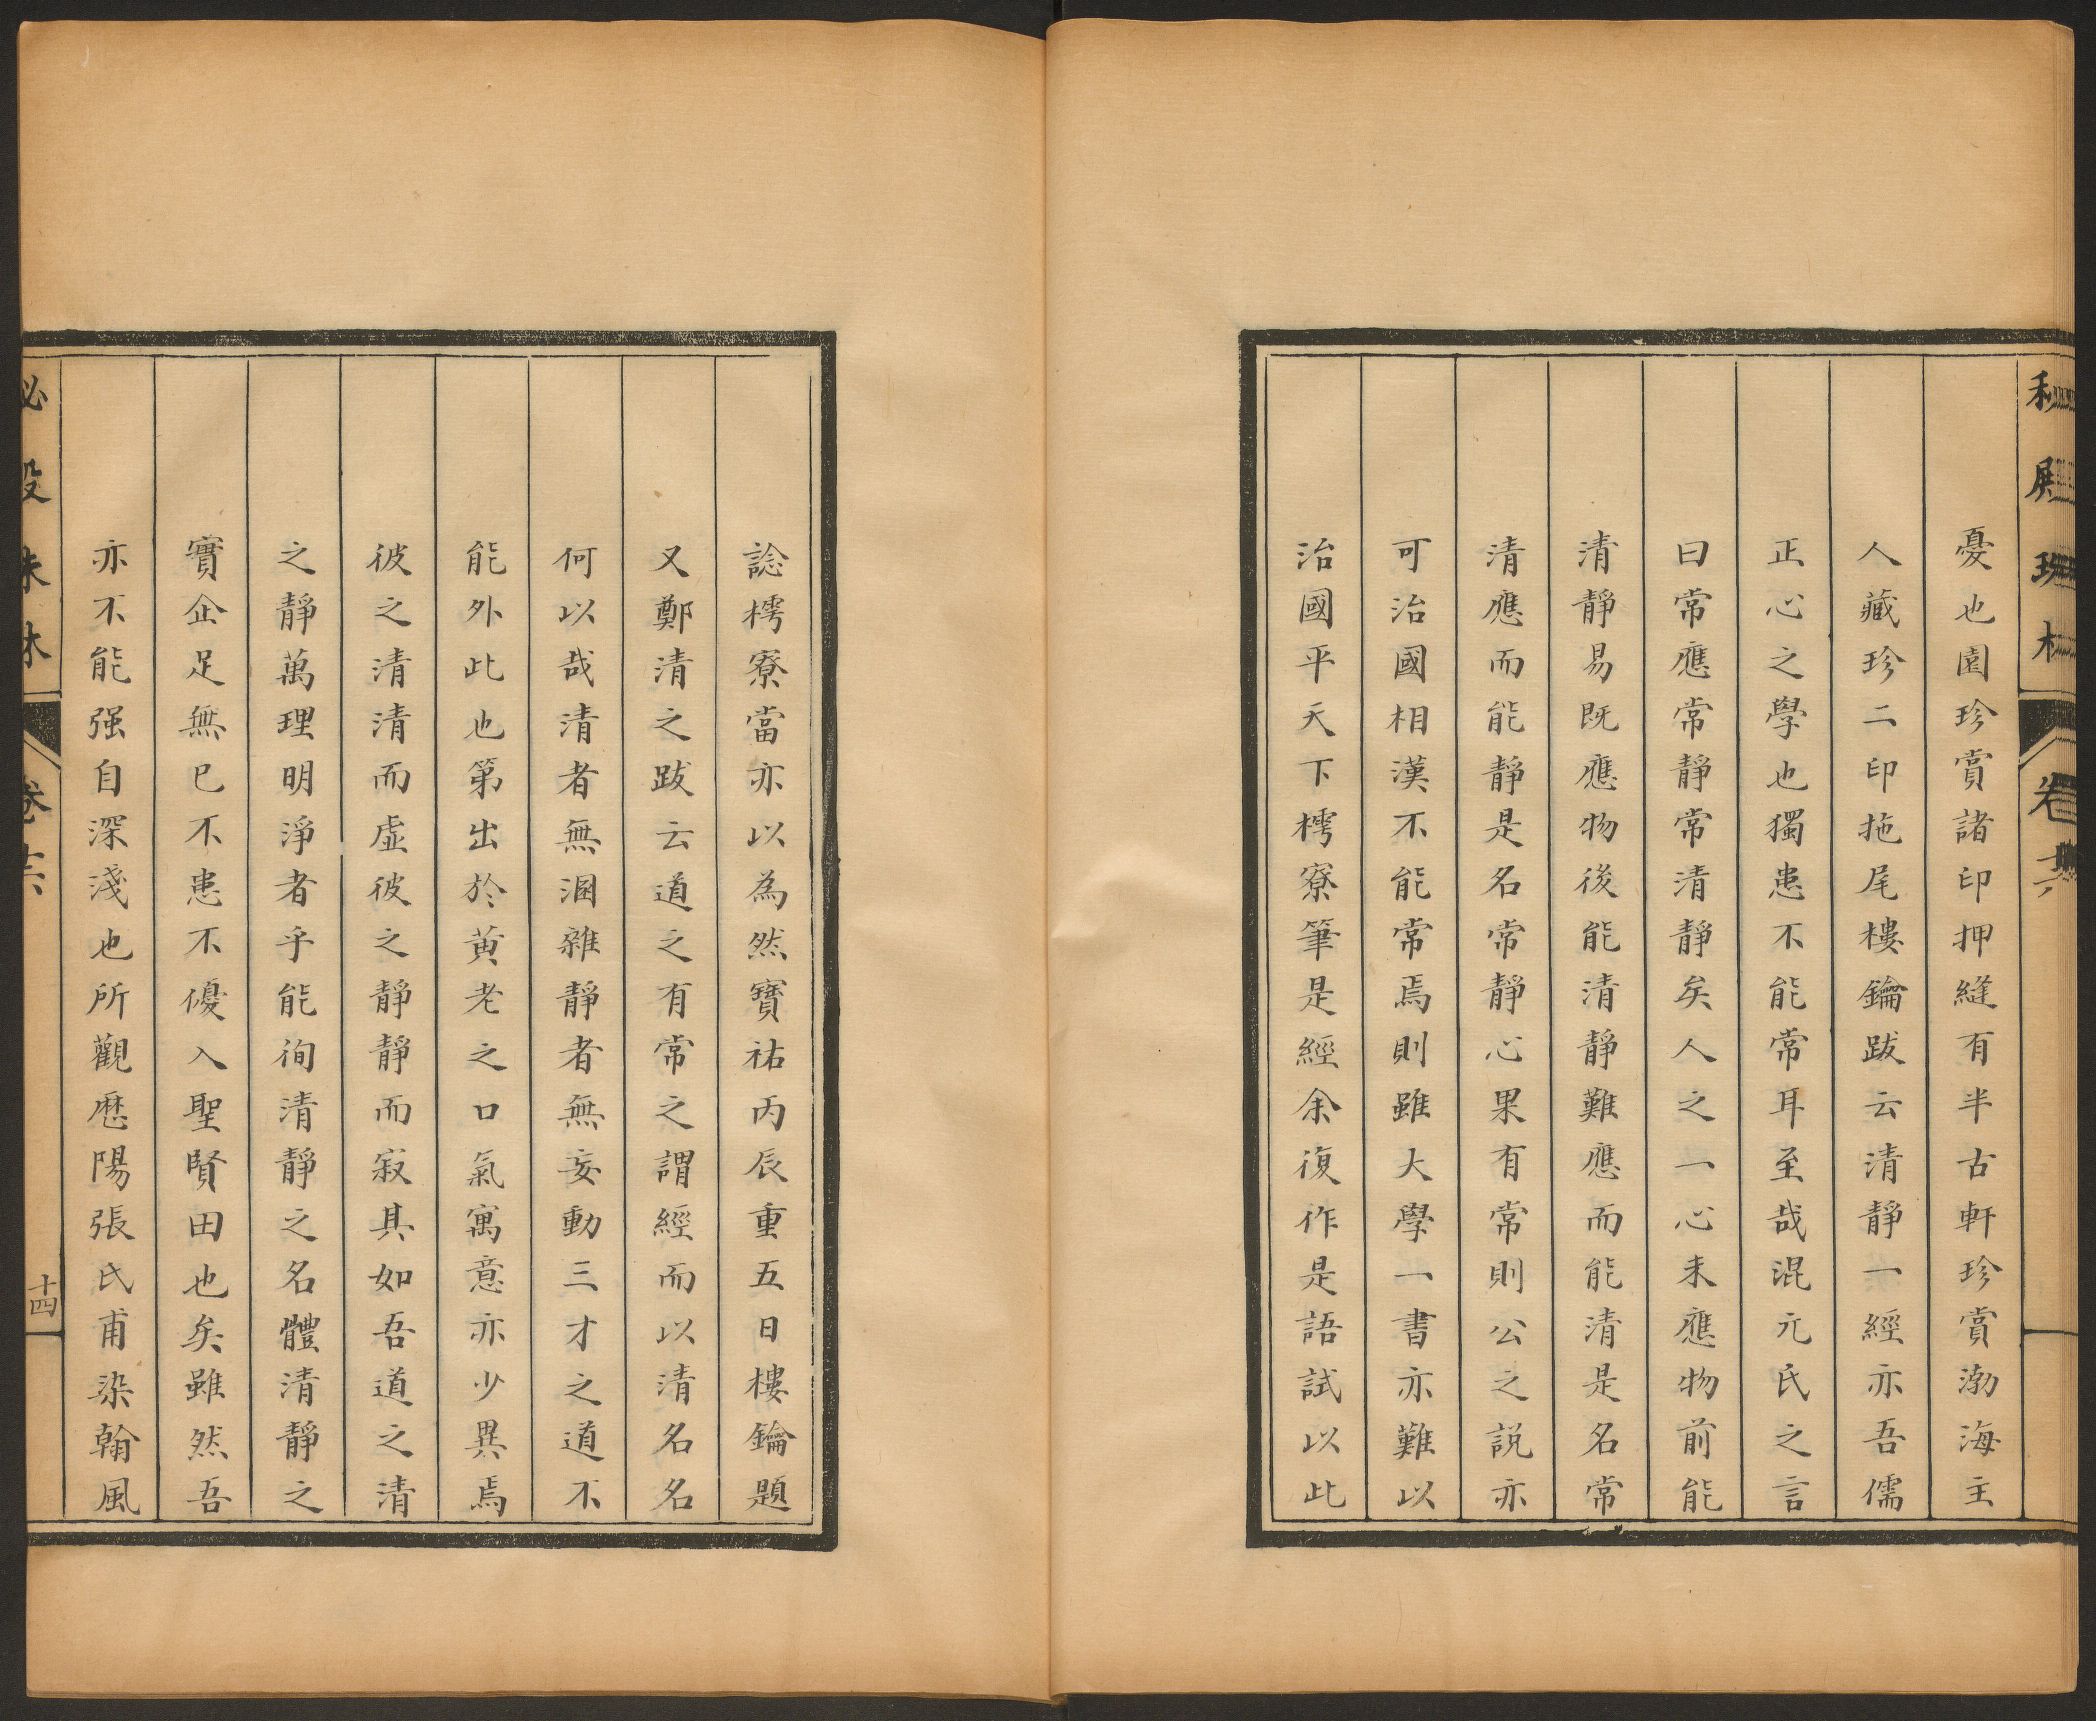 憂也園珍賞諸印押縫有半古軒珍賞渤海主
人藏珍二印拖尾樓鑰跋云清靜一經亦吾儒
正心之學也獨患不能常耳至哉混元氏之言
曰常應常靜常清靜矣人之一心未應物前能
清靜易既應物後能清靜難應而能清是名常
清應而能靜是名常靜心果有常則公之說亦
可治國相漢不能常焉則雖大學一書亦難以
治國平天下樗寮筆是經余復作是語試以此
諗樗寮當亦以為然寶祐丙辰重五日樓鑰題
又鄭清之跋云道之有常之謂經而以清名名
何以哉清者無溷雜靜者無妄動三才之道不
能外此也第出於黃老之口氣寓意亦少異焉
彼之清清而虛彼之靜靜而寂其如吾道之清
之靜萬理明淨者乎能徇清靜之名體清靜之
實企足無已不患不優入聖賢田也矣雖然吾
亦不能强自深淺也所觀歷陽張氏甫染翰風
秘殿珠林
卷十六
十四